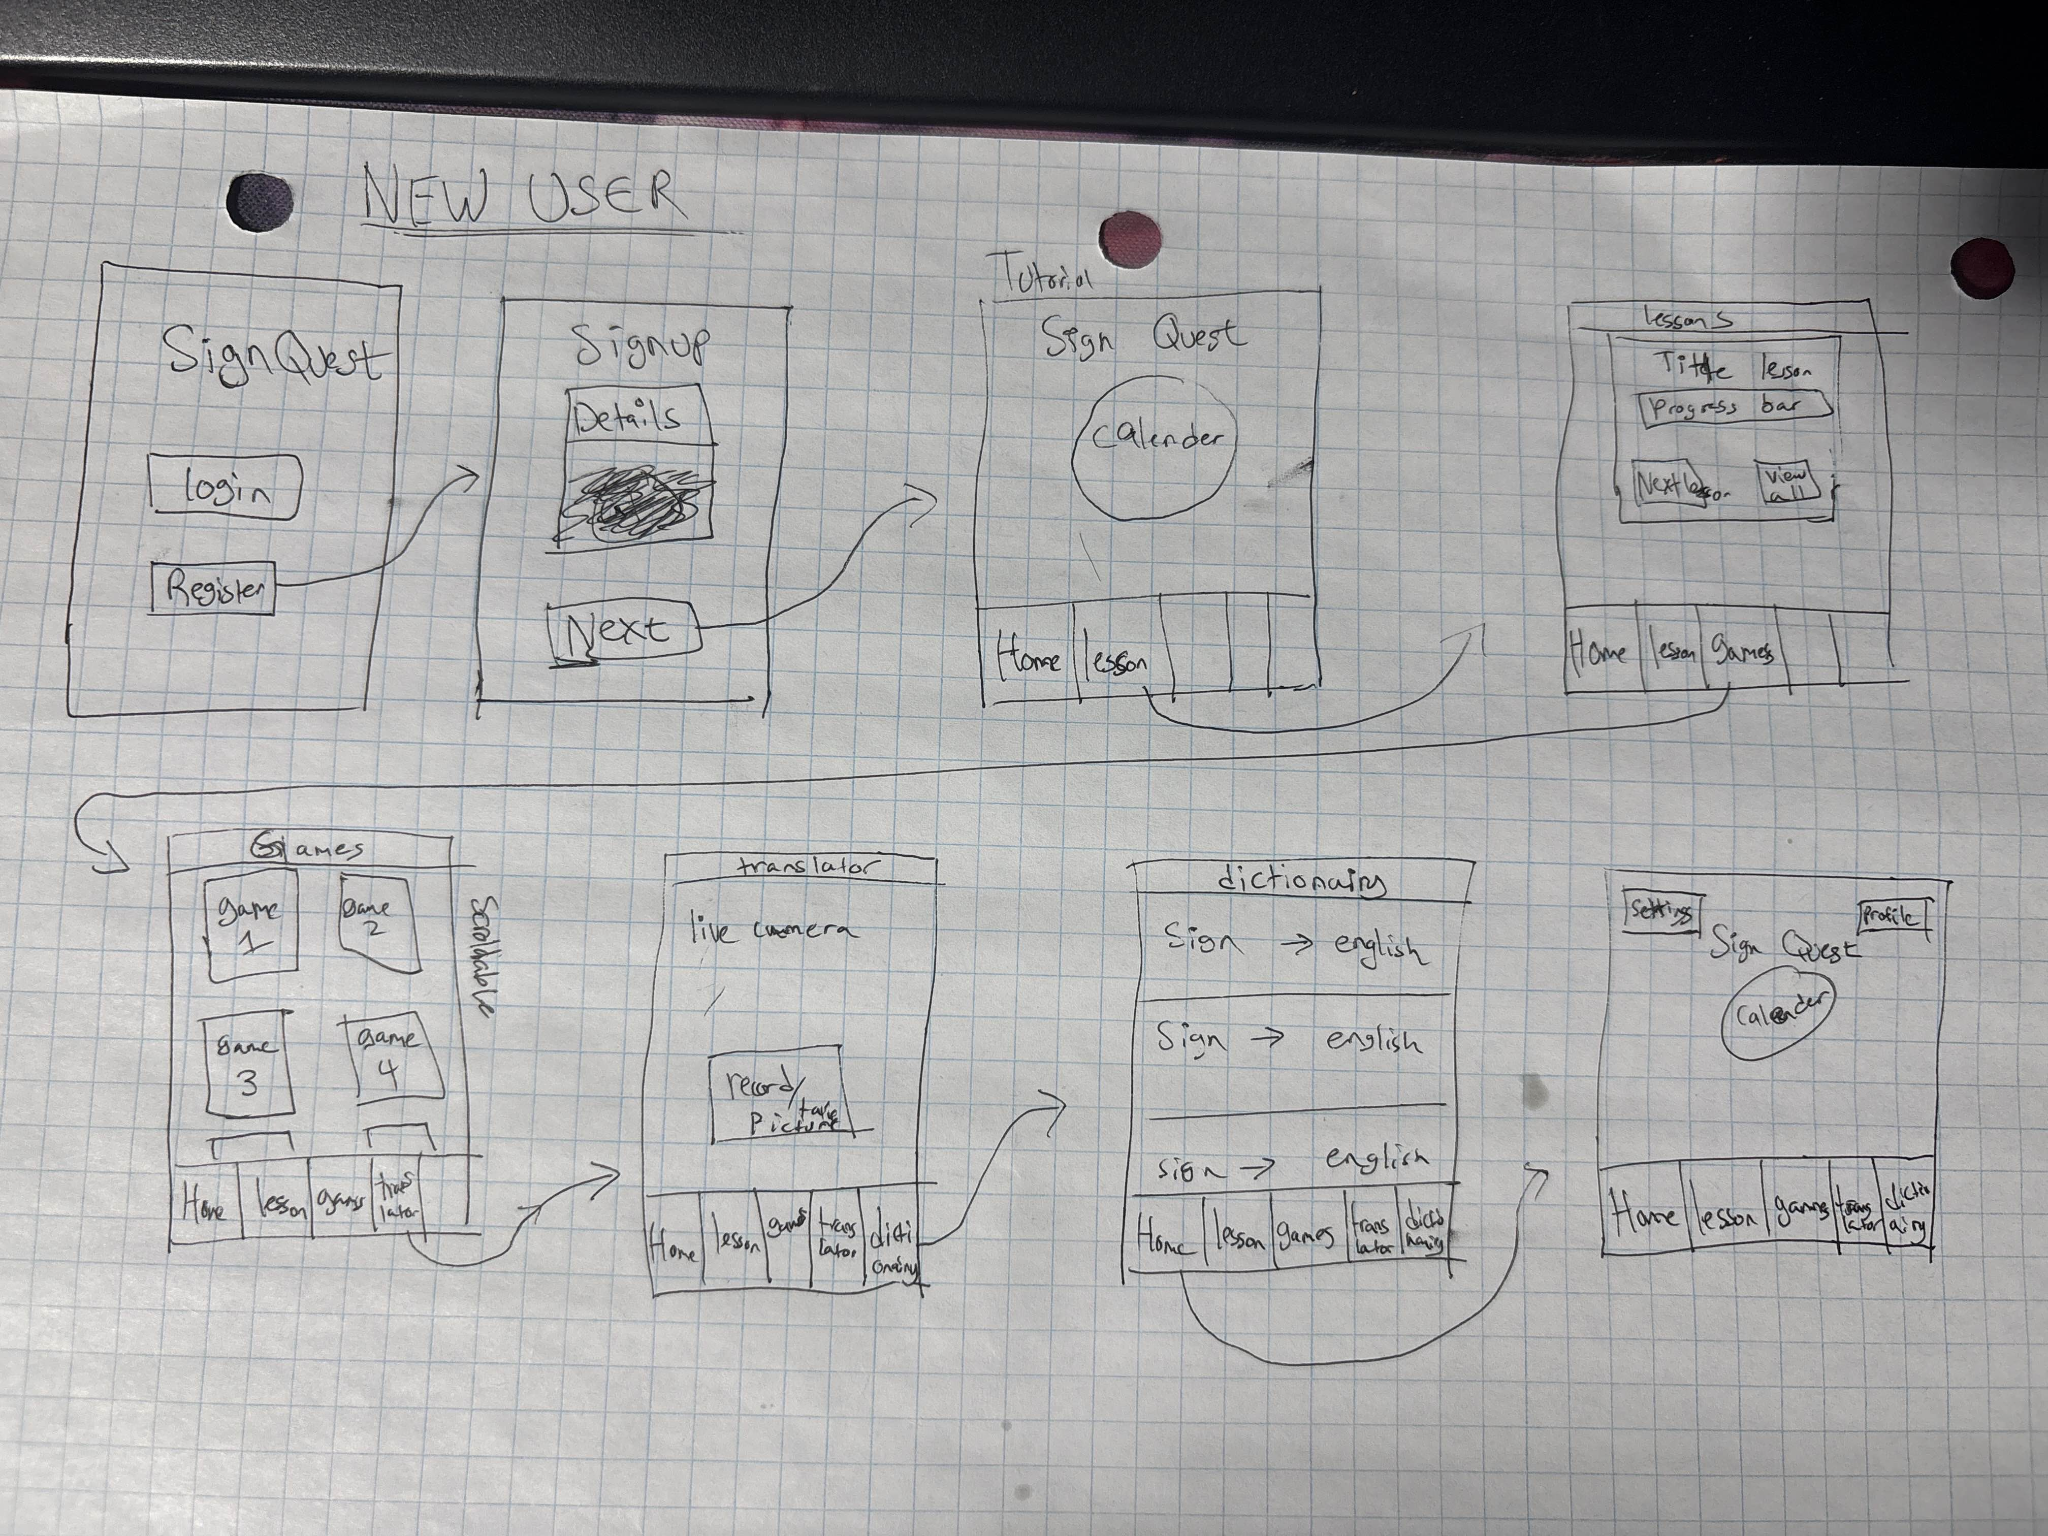 NEW USER
SignQuest
login
Register
Signup
Details
Next
Tutorial
Sign Quest
Calender
Home lesson
lessons
Title lesson
Progress bar
Next lesson
View
all
Home lesson games
Games
game
1
Game
2
game
3
game
4
Scrollable
Home lesson games trans
lator
translator
live camera
record/
take
Picture
Home lesson games trans
lator
dicti
onairy
dictionairy
Sign → english
Sign → english
sign → english
Home lesson games trans
lator
dictio
nairy
Settings
Profile
Sign Quest
Calender
Home lesson games trans
lator
dictio
nairy